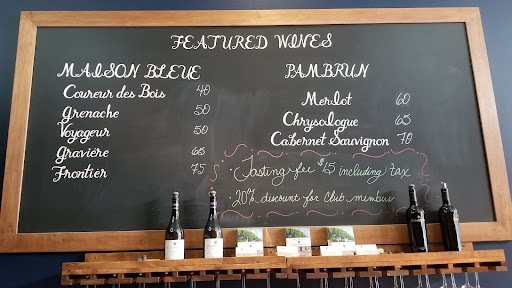 FEATURED WINES
MAISON BLEUE
Coureur des Bois 40
Grenache 50
Voyageur 50
Gravière 65
Frontier 75
PAMBRUN
Merlot 60
Chrysologue 65
Cabernet Sauvignon 70
Tasting fee $15 including tax
20% discount for Club members